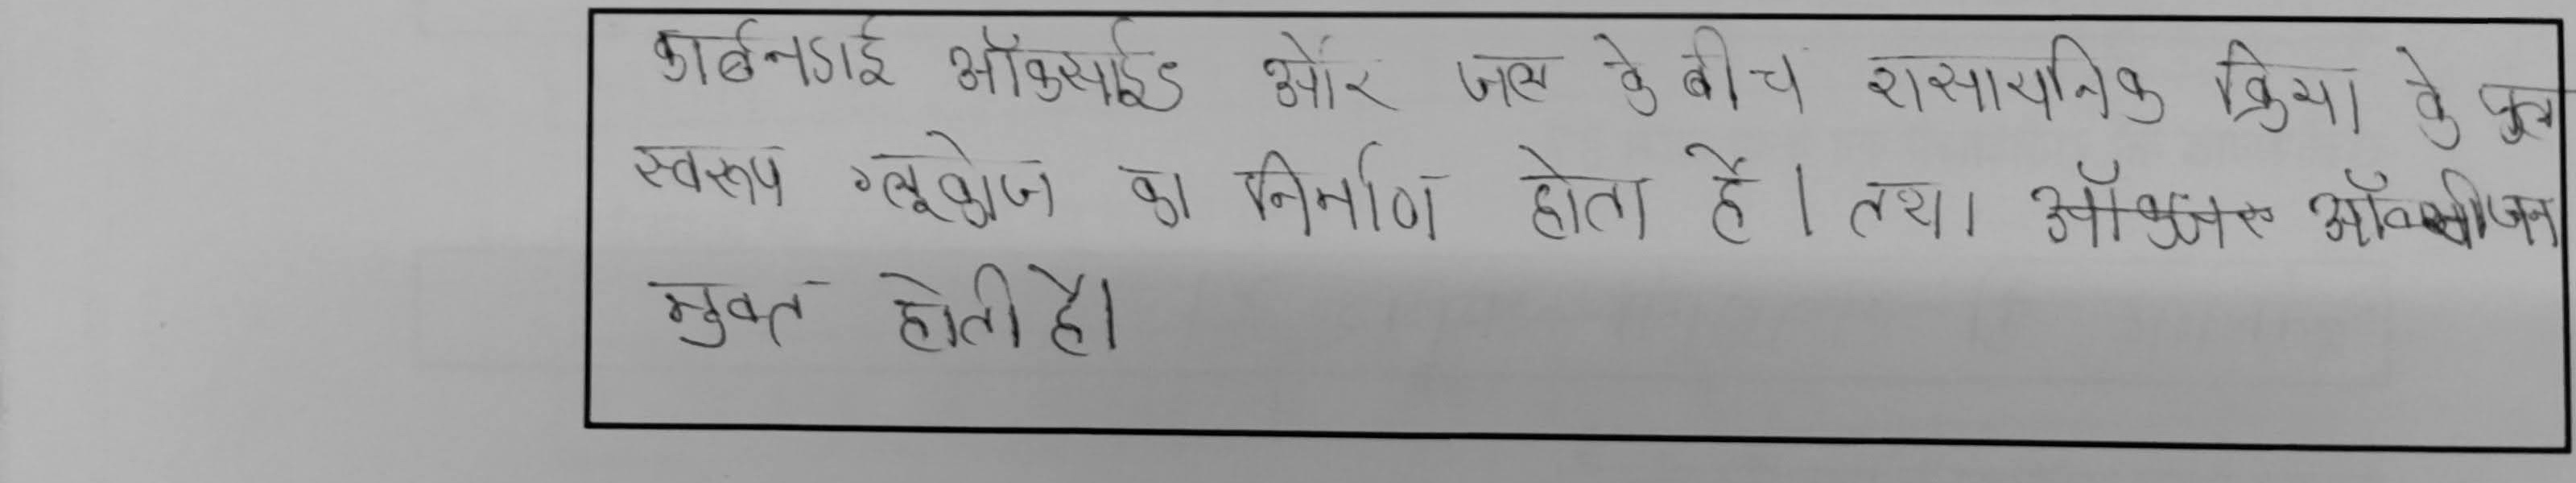 कार्बनडाई ऑक्साईड और जल के बीच रासायनिक क्रिया के फल
स्वरूप ग्लूकोज का निर्माण होता है । तथा ऑक्सीजन
मुक्त होती है।